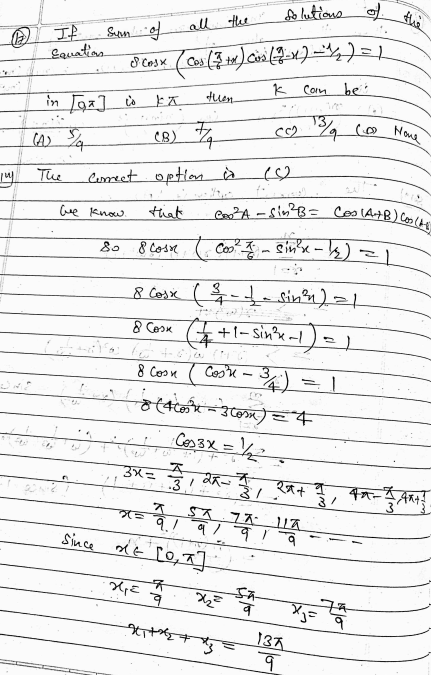 (13) If sum of all the solutions of the
Equation 8 cosx (Cos(π/6 +x) Cos(π/6 -x) - 1/2) = 1
in [0,π] is kπ then k can be:
(A) 5/9 (B) 7/9 (C) 13/9 (D) None
The correct option is (C)
We know that cos²A - sin²B = Cos(A+B) Cos(A-B)
So 8 Cosx (Cos² π/6 - sin²x - 1/2) = 1
8 Cosx (3/4 - 1/2 - sin²x) = 1
8 Cosx (1/4 + 1 - sin²x - 1) = 1
8 Cosx (Cos²x - 3/4) = 1
8 (4cos³x - 3cosx) = 4
Cos3x = 1/2
3x = π/3, 2π - π/3, 2π + π/3, 4π - π/3, 4π + π/3
x = π/9, 5π/9, 7π/9, 11π/9 - - - -
Since x ∈ [0,π]
x₁ = π/9 x₂ = 5π/9 x₃ = 7π/9
x₁ + x₂ + x₃ = 13π/9